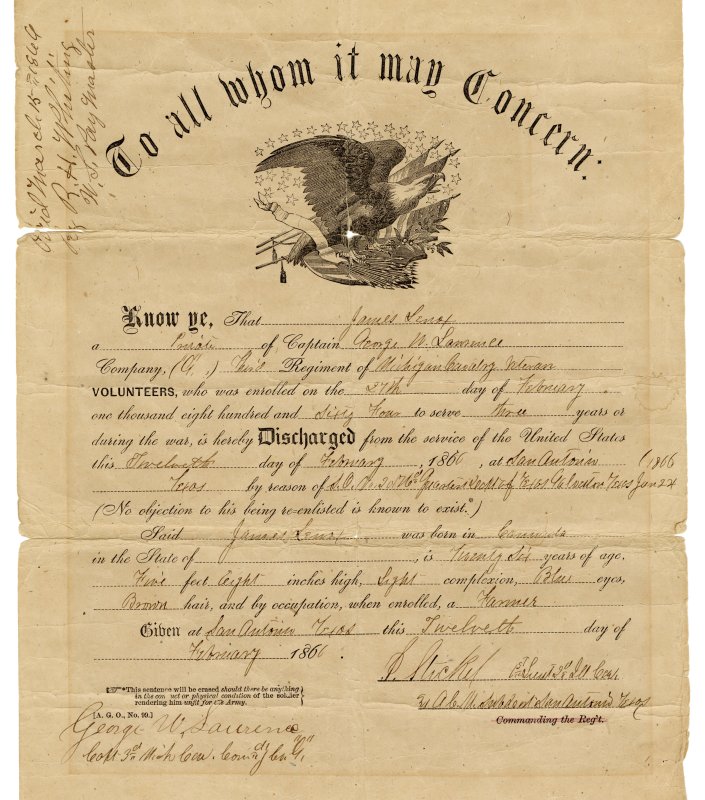 Paid March 18 1866
R. H. Whiting
U. S. Pay Master
To all whom it may Concern:
Know ye, That James Lenox
a Private of Captain George W. Lawrence
Company, (G,) Third Regiment of Michigan Cavalry Veteran
VOLUNTEERS, who was enrolled on the 27th day of February
one thousand eight hundred and Sixty Four to serve Three years or
during the war, is hereby Discharged from the service of the United States
this Twelveth day of February, 1866, at San Antonio (1866
Texas by reason of S.O. No 20 Hd Quarters Dept of Texas Galveston Texas Jan 24
(No objection to his being re-enlisted is known to exist.*)
Said James Lenox was born in
in the State of , is Twenty Six years of age,
Five feet Eight inches high, Light complexion, Blue eyes,
Brown hair, and by occupation, when enrolled, a Farmer
Given at San Antonio Texas this Twelveth day of
February 1866.
*This sentence will be erased should there be anything
in the conduct or physical condition of the soldier
rendering him unfit for the Army.
[A. G. O., No. 99.]
San Antonio Texas
Commanding the Reg't.
George W. Lawrence
Capt 3d Mich Cav. Comdg Co. "G"